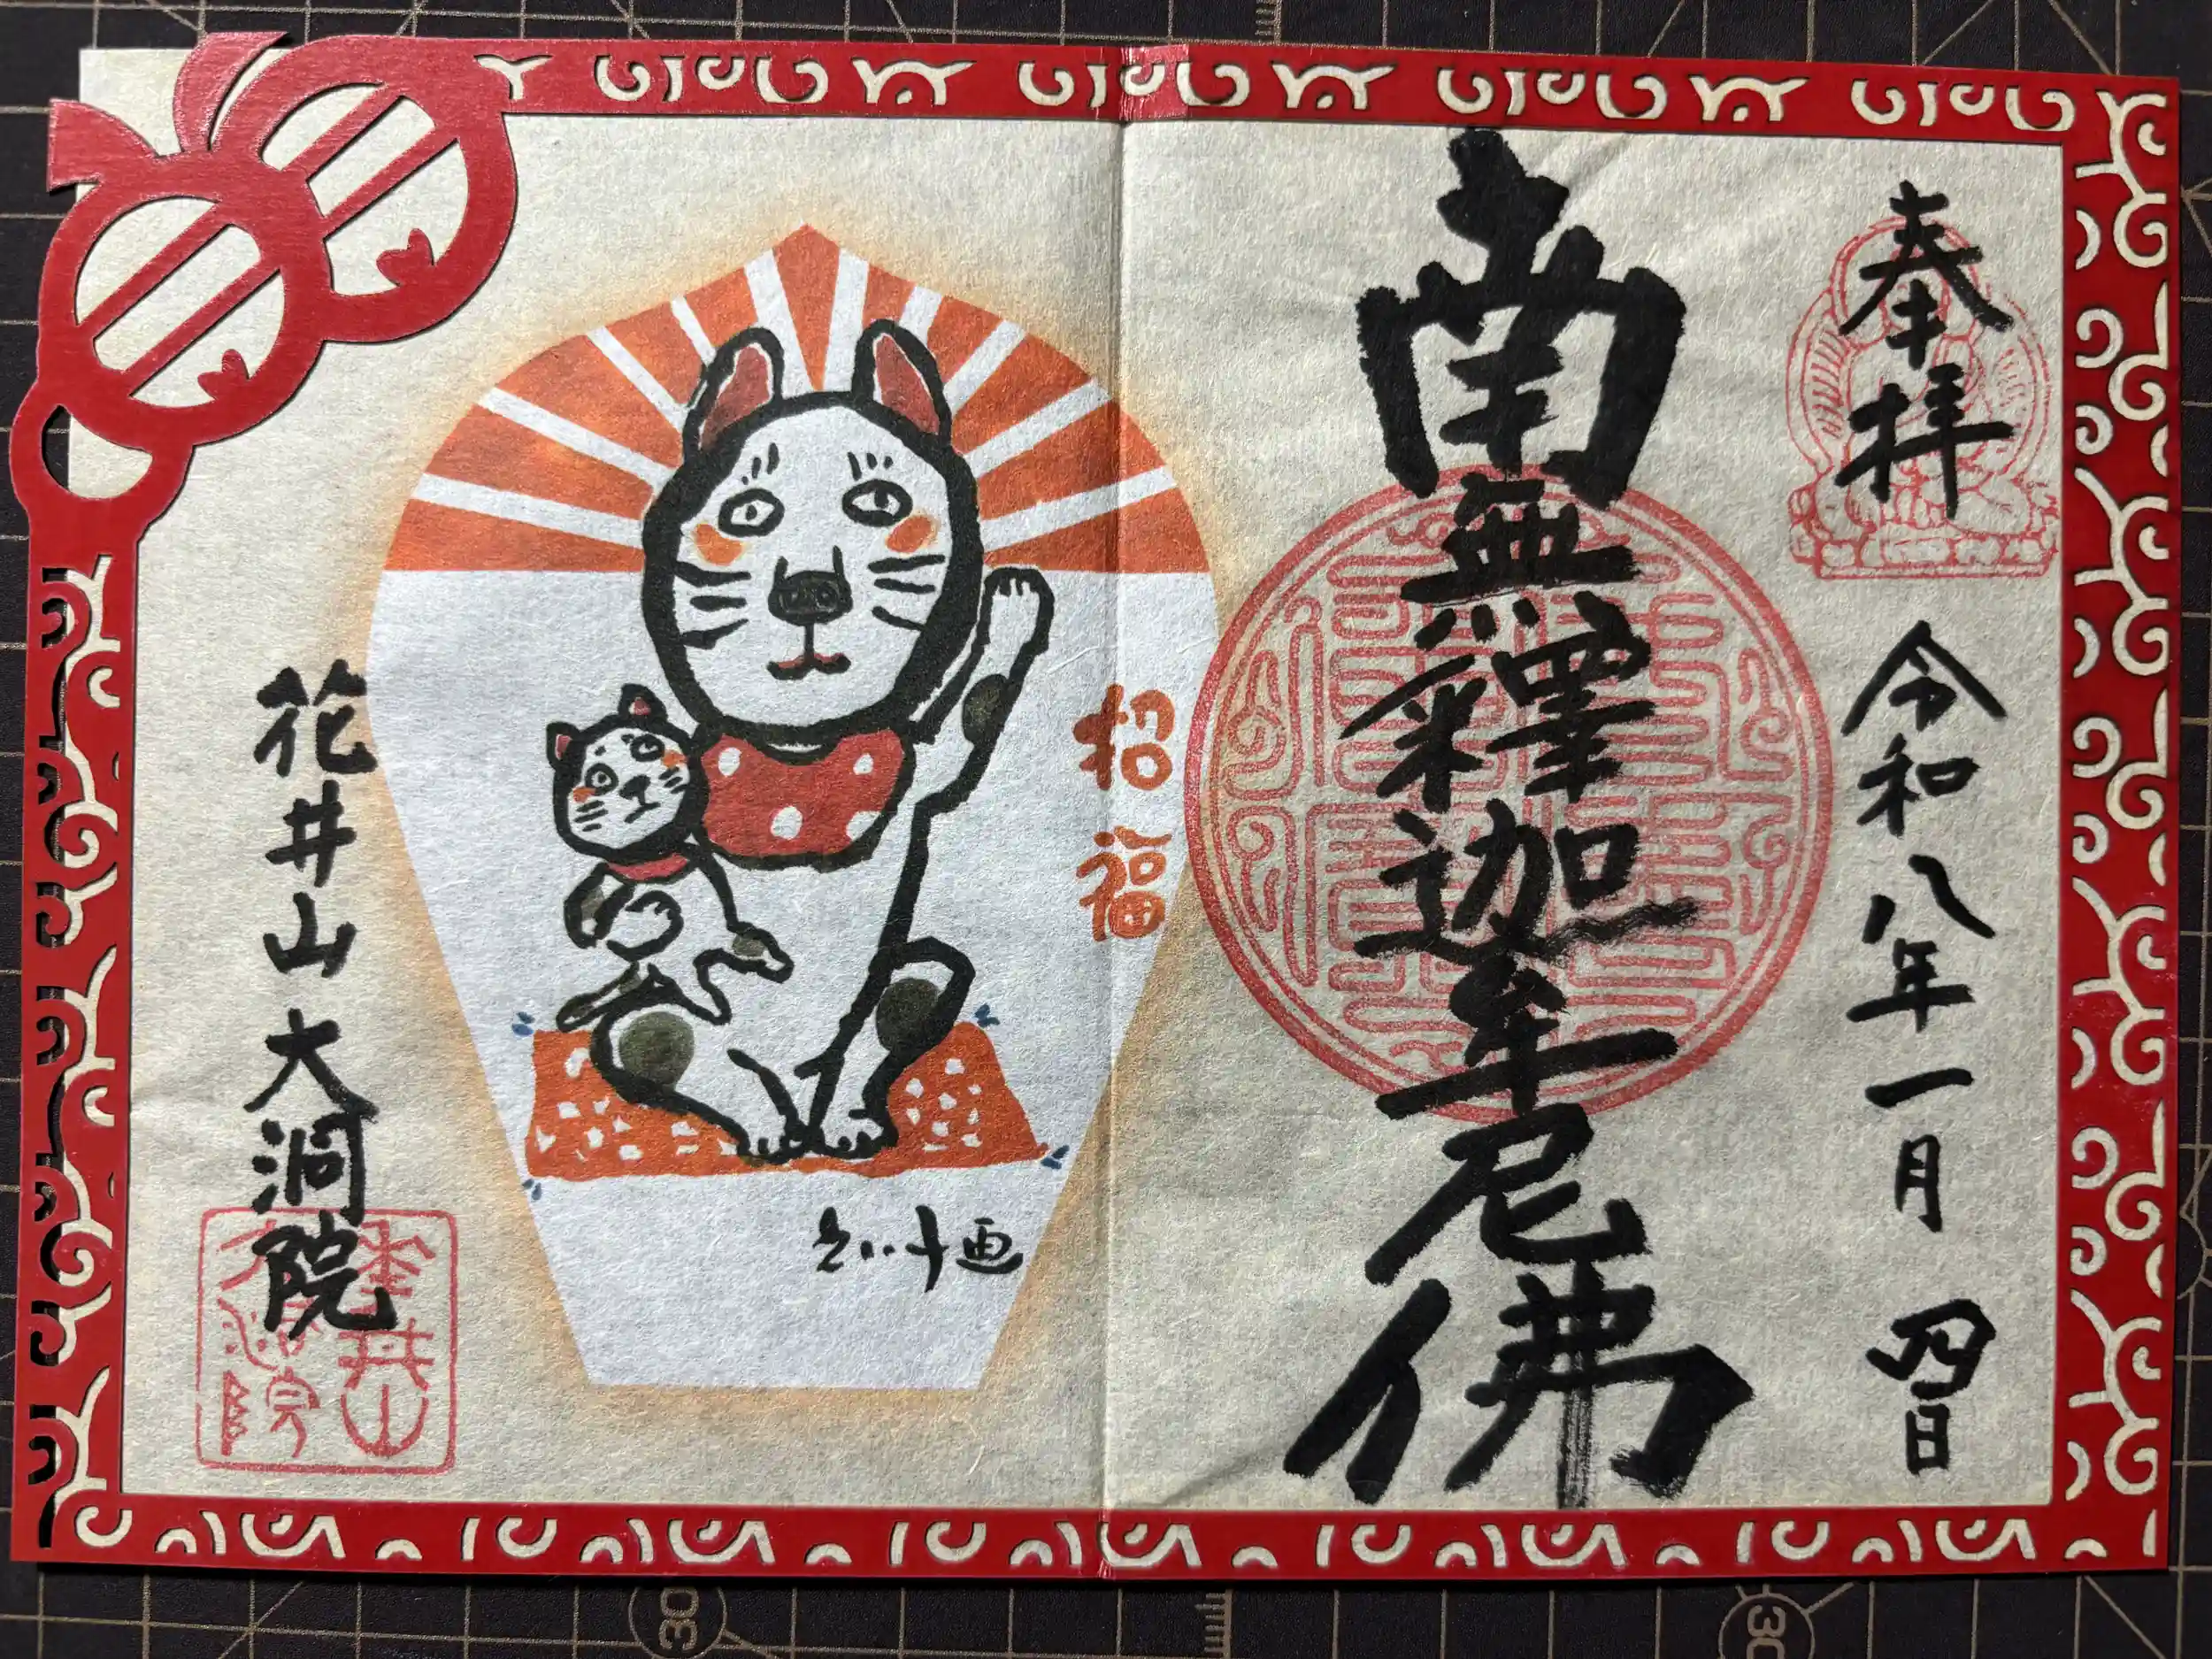 奉拝
令和八年一月四日
南無釋迦牟尼佛
招福
画
花井山大洞院
30
30